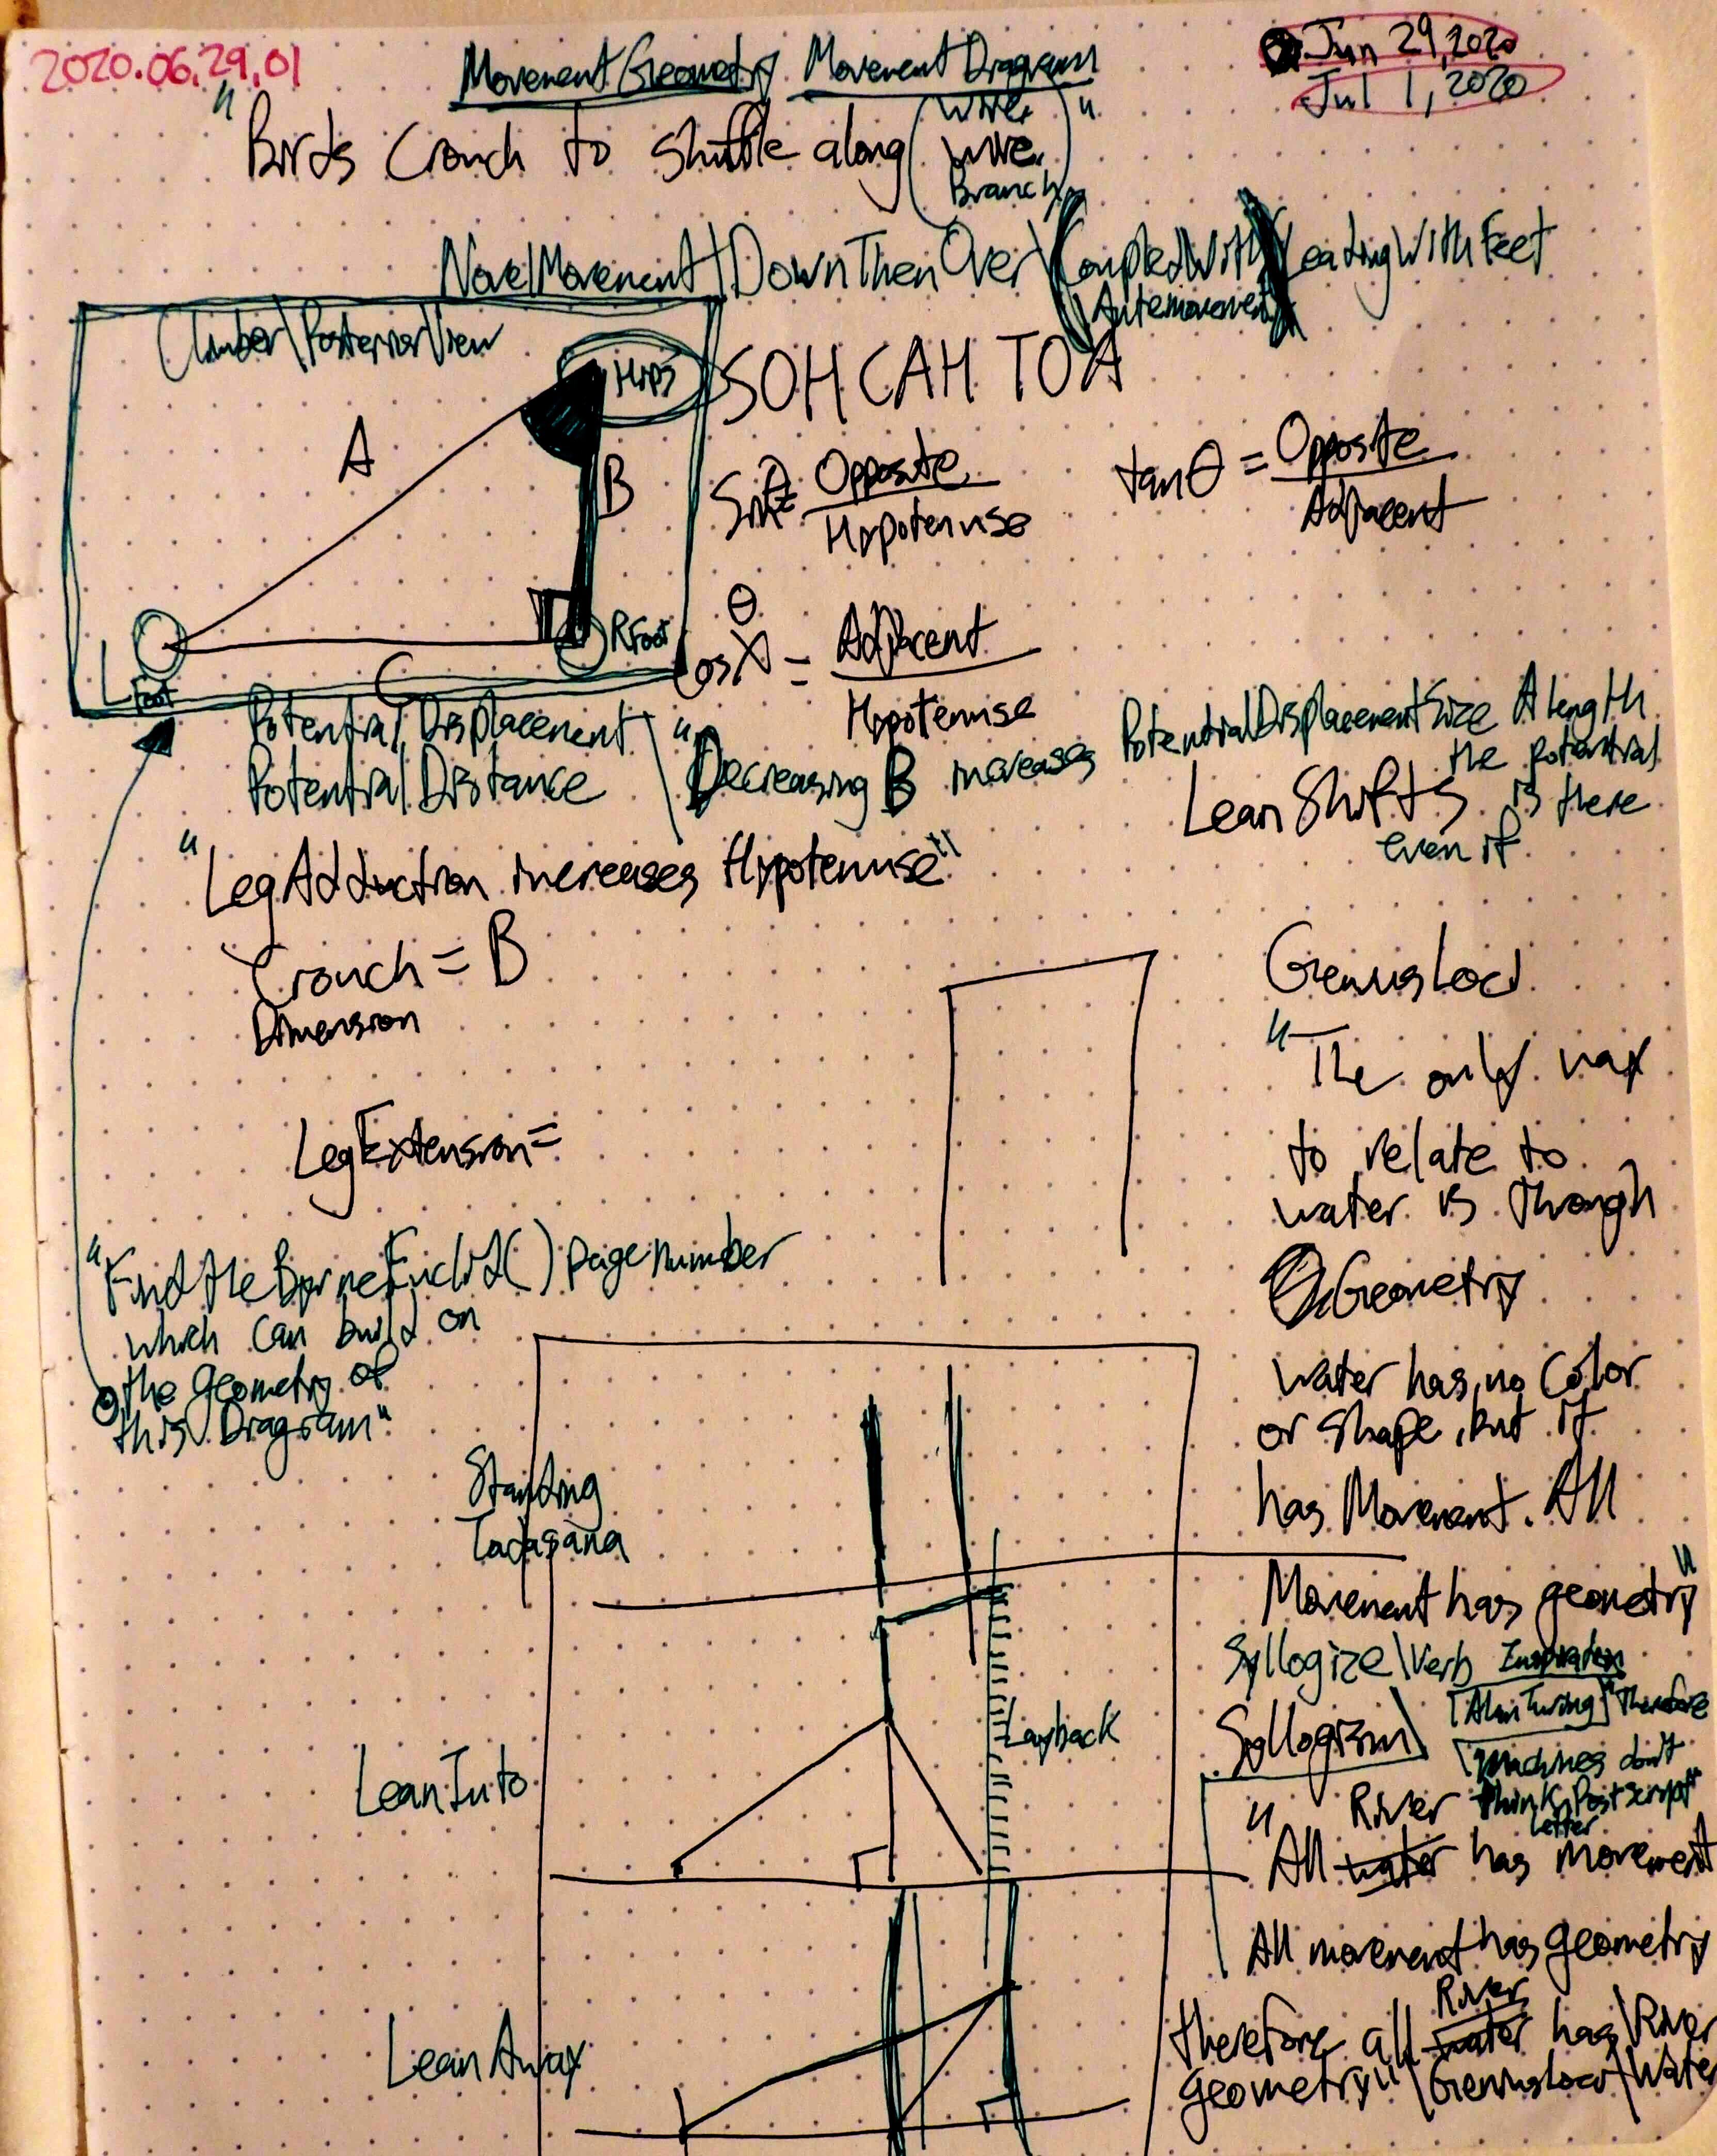 2020.06.29.01
MovementGeometry MovementDiagram
Jun 29, 2020
Jul 1, 2020
"Birds Crouch to shuffle along (Wire, Wire, Branch)"
NovelMovement\DownThenOver\(CoupledWith)LeadingWithFeet
Antemovement
Climber\PosteriorView
Hips
A
B
C
L Foot
R Foot
SOH CAH TOA
Sinθ = Opposite
Hypotenuse
tanθ = Opposite
Adjacent
θ
Cos = Adjacent
Hypotenuse
Potential Displacement
Potential Distance
"Decreasing B increases PotentialDisplacementSize A length
LeanShifts
the potential
is there
even if
"LegAdduction increases Hypotenuse"
Crouch = B
Dimension
LegExtension=
"Find the ByrneEuclid() page number
which can build on
the geometry of
this Diagram"
GeniusLoci
"The only way
to relate to
water is through
Geometry
water has no Color
or shape, but it
has Movement. All
Movement has geometry"
Syllogize\Verb Inspiration
Syllogism\
[Alan Turing] "Therefore
machines don't
think" PostScript
Letter
River
"All water has movement
All movement has geometry
River
therefore all water has \River
geometry" \GeniusLoci\Water
Standing
Tadasana
LeanInto
Layback
LeanAway